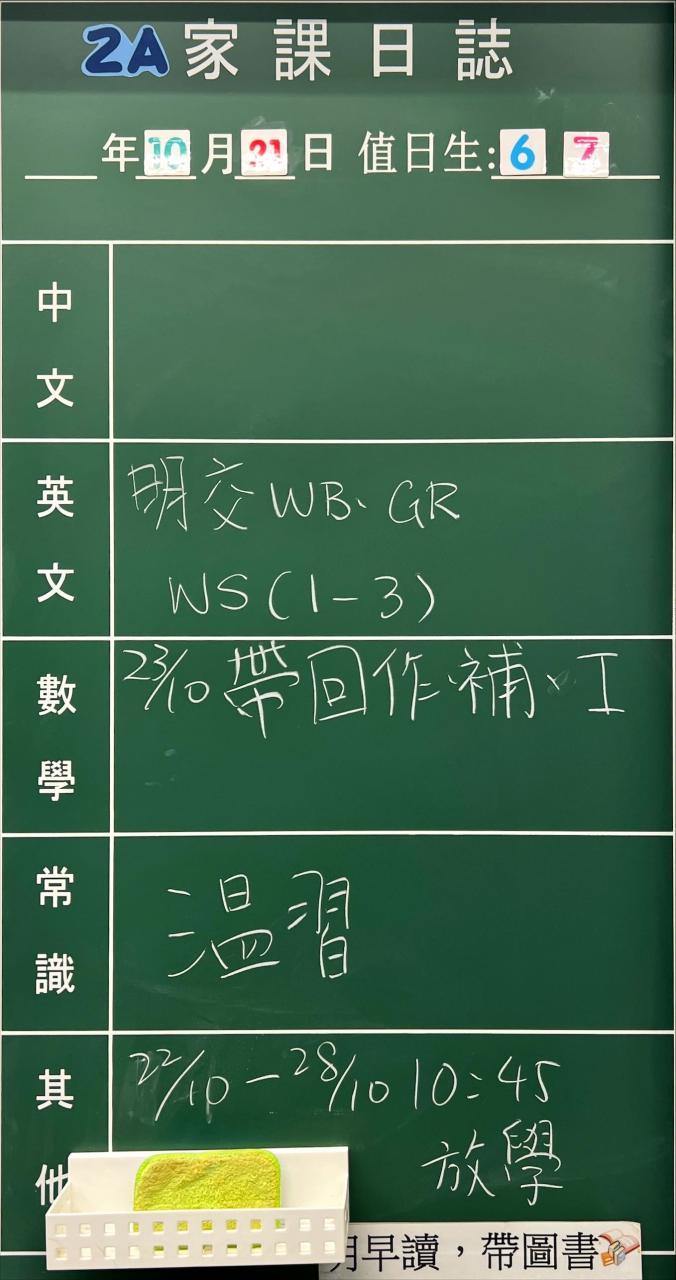 2A 家課日誌
年10月21日 值日生:6 7
中文
英文
明交WB、GR
WS(1-3)
數學
23/10 帶回作、補、工
常識
溫習
其他
22/10-28/10 10:45
放學
明早讀，帶圖書